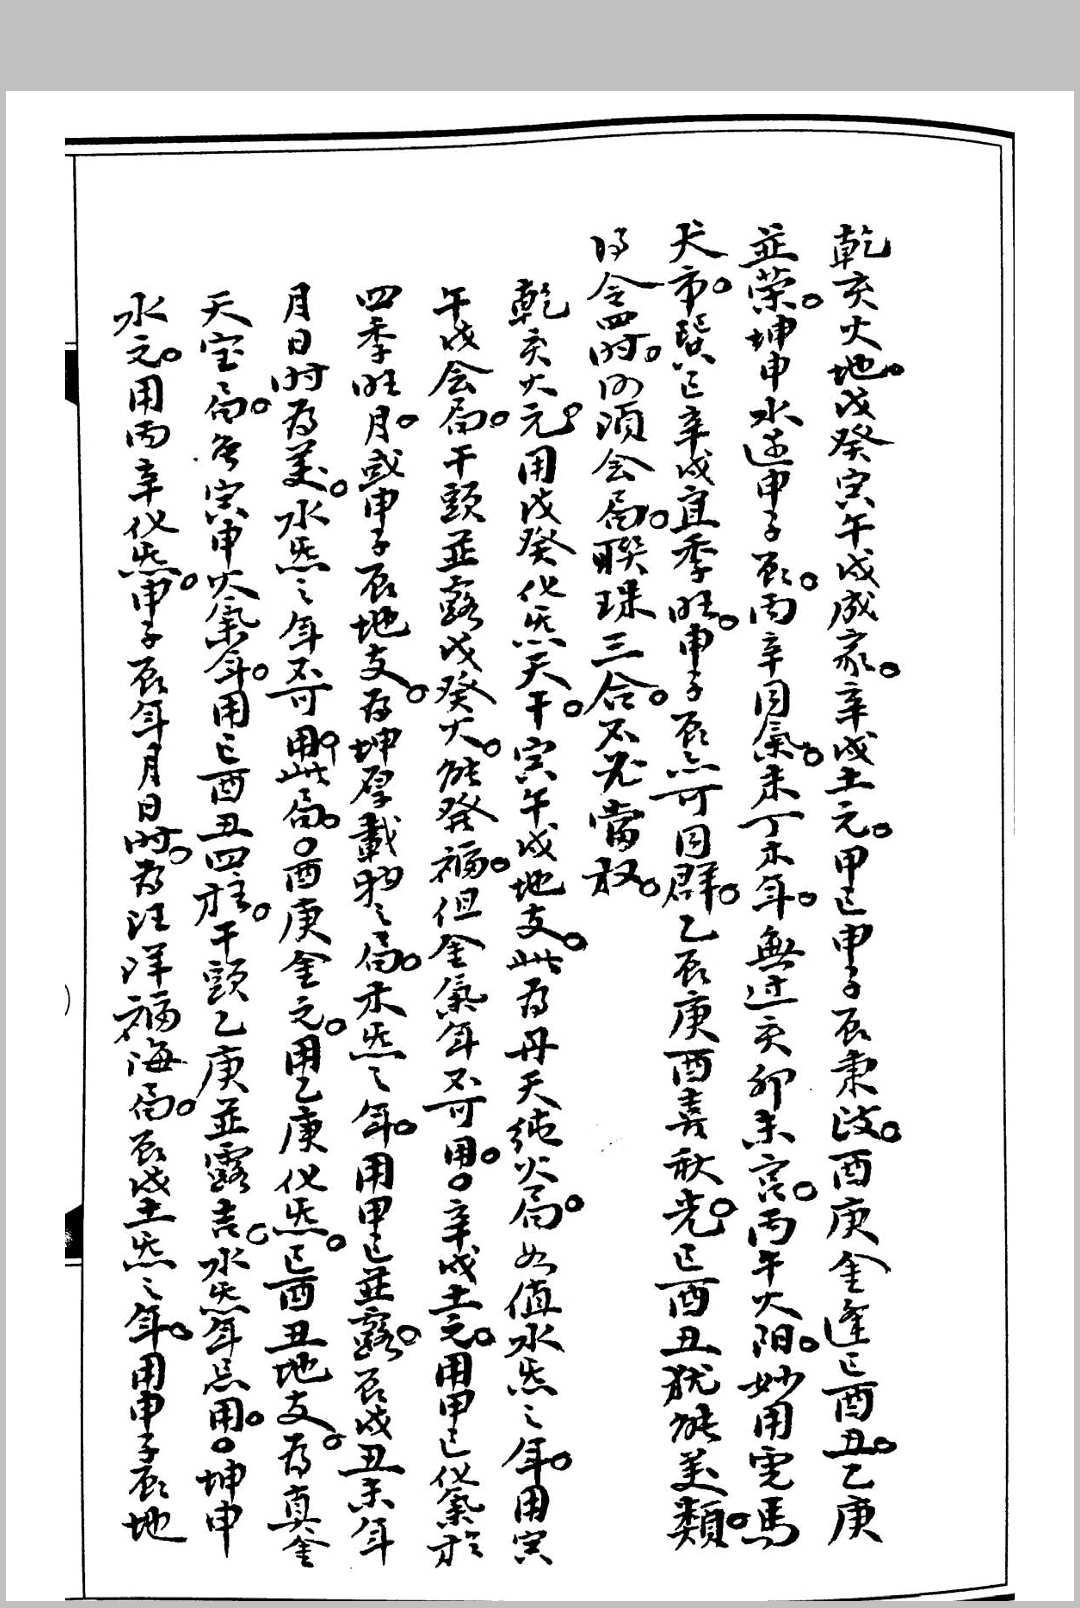 乾亥火地。戊癸寅午戌成家。辛戌土元。甲巳申子辰秉政。酉庚金逢巳酉丑。乙庚
並榮。坤申水遠申子辰。丙辛同氣。未丁木年。無过亥卯未宮。丙午火阳。妙用寅馬
犬。市巽巳辛戌宜季旺。申子辰亦可同群。乙辰庚酉喜秋光。巳酉丑犹能美類。
得令四时。必須会局。聯珠三合。不必當权。
乾亥火元。用戊癸化炁天干。寅午戌地支。此为丹天純火局。如值水炁之年。用寅
午戌会局。干頭並露戊癸火。能發福。但金氣年不可用。○辛戌土元。用甲巳化氣於
四季旺月。或申子辰地支。为坤厚載物之局。木炁之年。用甲巳並露。辰戌丑未年
月日时为美。水炁之年不可用此局。○酉庚金元。用乙庚化炁。巳酉丑地支。为真金
天宝局。若寅申火氣年。用巳酉丑四柱。干頭乙庚並露吉。水炁年忌用。○坤申
水元。用丙辛化炁。申子辰年月日时。为汪洋福海局。辰戌土炁之年。用申子辰地